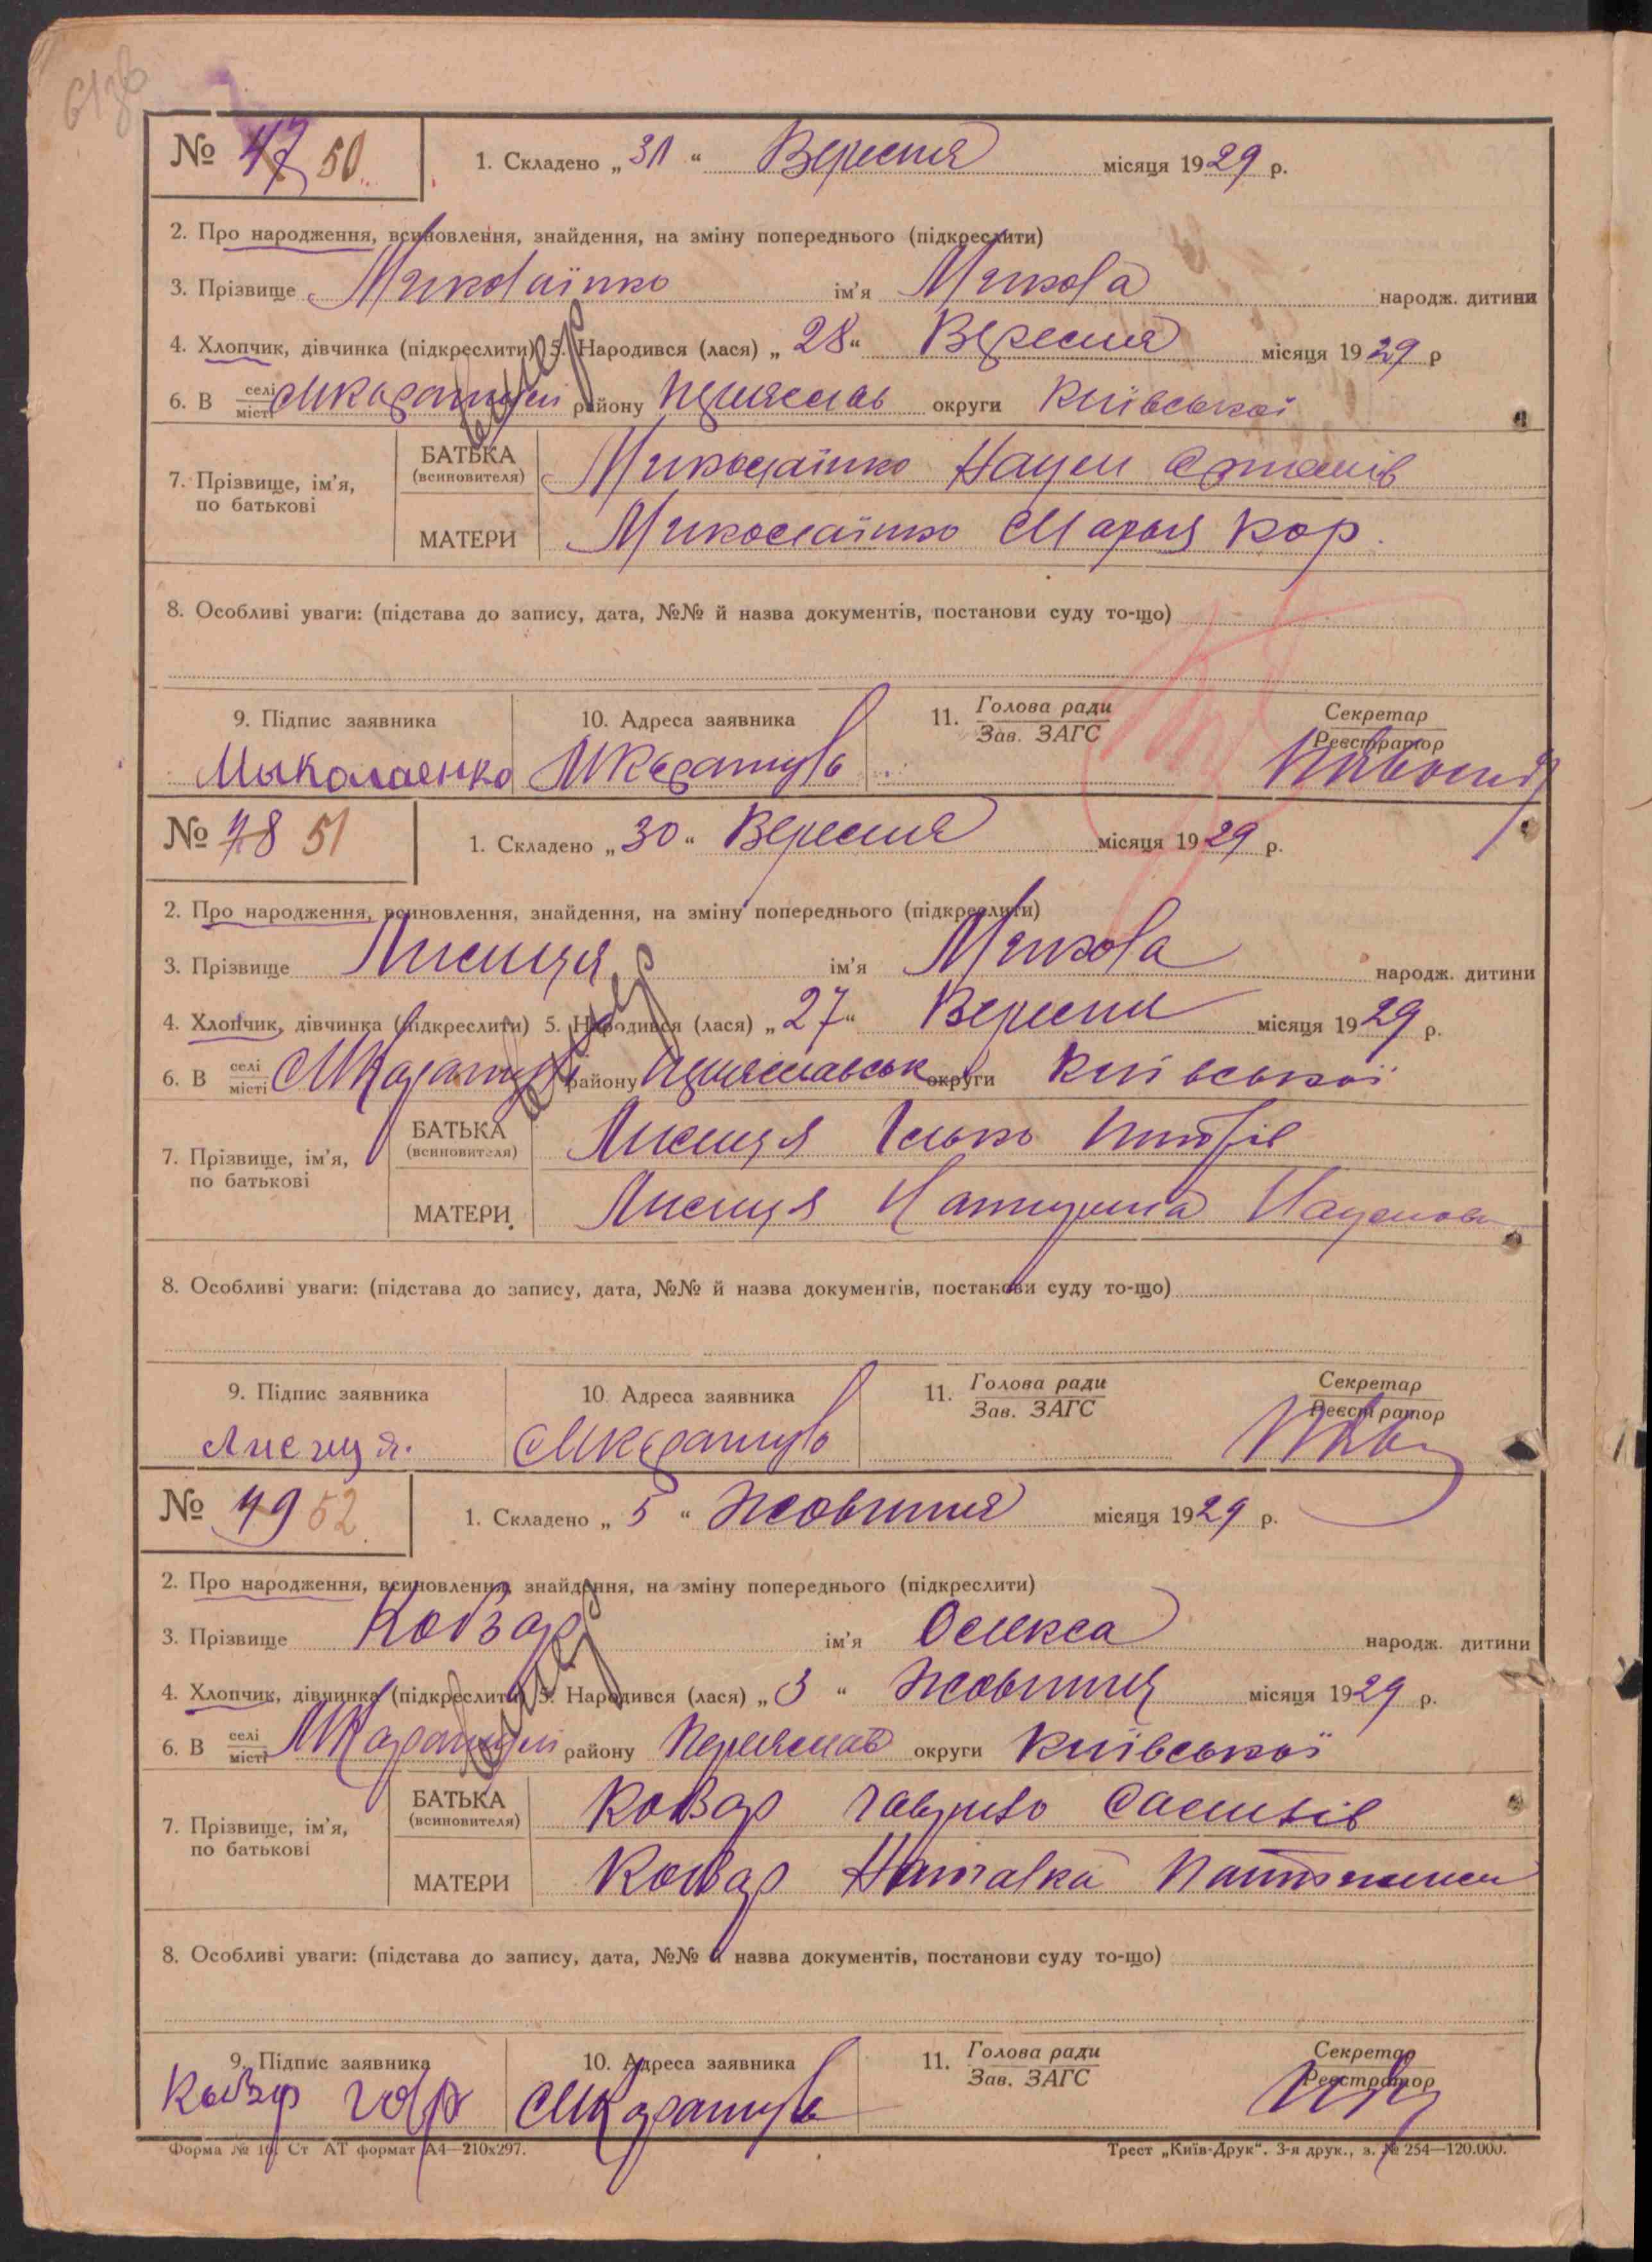 № 47 50
1. Складено „31“ Вересня місяця 1929 р.
2. Про народження, всиновлення, знайдення, на зміну попереднього (підкреслити)
3. Прізвище Миколаїнко ім'я Микола народж. дитини
4. Хлопчик, дівчинка (підкреслити) 5. Народився (лася) „28“ Вересня місяця 1929 р
6. В селі місті району Переяслав округи Київської
7. Прізвище, ім'я, по батькові
БАТЬКА (всиновителя) Миколаїнко Наум
МАТЕРИ Миколаїнко Марья Кор.
8. Особливі уваги: (підстава до запису, дата, №№ й назва документів, постанови суду то-що)
9. Підпис заявника 10. Адреса заявника 11. Голова ради Зав. ЗАГС Секретар Реєстратор
Мыколаенко
№ 48 51
1. Складено „30“ Вересня місяця 1929 р.
2. Про народження, всиновлення, знайдення, на зміну попереднього (підкреслити)
3. Прізвище Лисиця ім'я Микола народж. дитини
4. Хлопчик, дівчинка (підкреслити) 5. Народився (лася) „27“ Вересня місяця 1929 р.
6. В селі місті району Переяславськ округи Київської
7. Прізвище, ім'я, по батькові
БАТЬКА (всиновителя) Лисиця Ілько
МАТЕРИ Лисиця Наумова
8. Особливі уваги: (підстава до запису, дата, №№ й назва документів, постанови суду то-що)
9. Підпис заявника 10. Адреса заявника 11. Голова ради Зав. ЗАГС Секретар Реєстратор
Лисиця.
№ 49 52
1. Складено „5“ Жовтня місяця 1929 р.
2. Про народження, всиновлення, знайдення, на зміну попереднього (підкреслити)
3. Прізвище Кобзар ім'я Олекса народж. дитини
4. Хлопчик, дівчинка (підкреслити) 5. Народився (лася) „3“ Жовтня місяця 1929 р.
6. В селі місті району Переяслав округи Київської
7. Прізвище, ім'я, по батькові
БАТЬКА (всиновителя) Кобзар Гаврило
МАТЕРИ Кобзар Наталка
8. Особливі уваги: (підстава до запису, дата, №№ й назва документів, постанови суду то-що)
9. Підпис заявника 10. Адреса заявника 11. Голова ради Зав. ЗАГС Секретар Реєстратор
Кобзар
Форма № 10. Ст АТ формат А4—210х297. Трест „Київ-Друк“. 3-я друк., з. № 254—120.000.